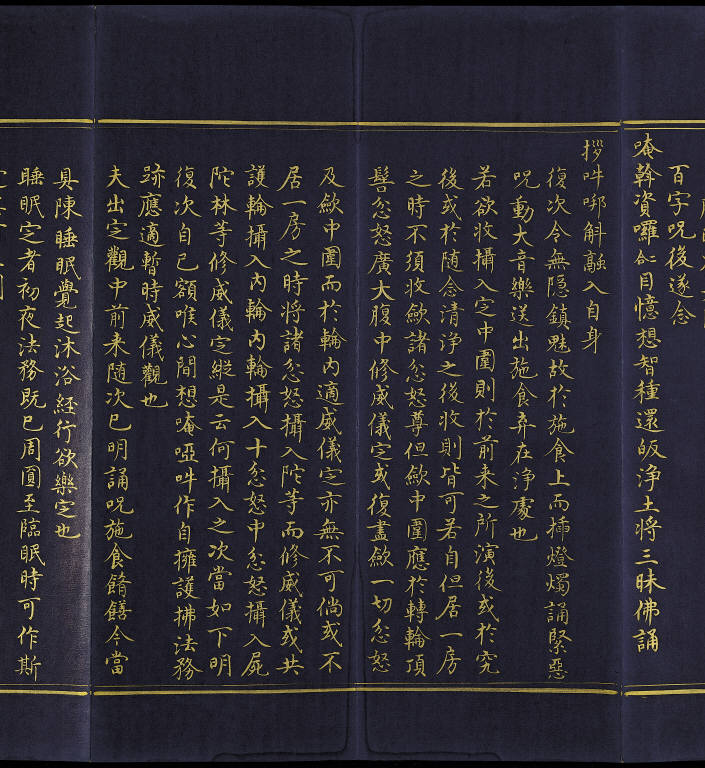 百字呪後遂念
唵斡資囉㘕目憶想智種還皈淨土將三昧佛誦
拶吽㖫斛融入自身
復次令無隱鎖魅故於施食上而插燈燭誦緊惡
呪動大音樂送出施食弃在淨處也
若欲收攝入定中圍則於前来之所演後或於究
後或於随念清淨之後收則皆可若自但居一房
之時不須收歛諸忿怒尊但歛中圍應於轉輪頂
髻忿怒廣大腹中修威儀定或復盡歛一切忿怒
及歛中圍而於輪內適威儀定亦無不可倘或不
居一房之時將諸忿怒攝入陀等而修威儀或共
護輪攝入內輪內輪攝入十忿怒中忿怒攝入屍
陀林等修威儀定縱是云何攝入之次當如下明
復次自己額喉心間想唵啞吽作自擁護拂法務
跡應適暫時威儀觀也
夫出定觀中前来随次已明誦呪施食餚饍今當
具陳睡眠覺起沐浴経行欲樂定也
睡眠定者初夜法務既已周圓至臨眠時可作斯